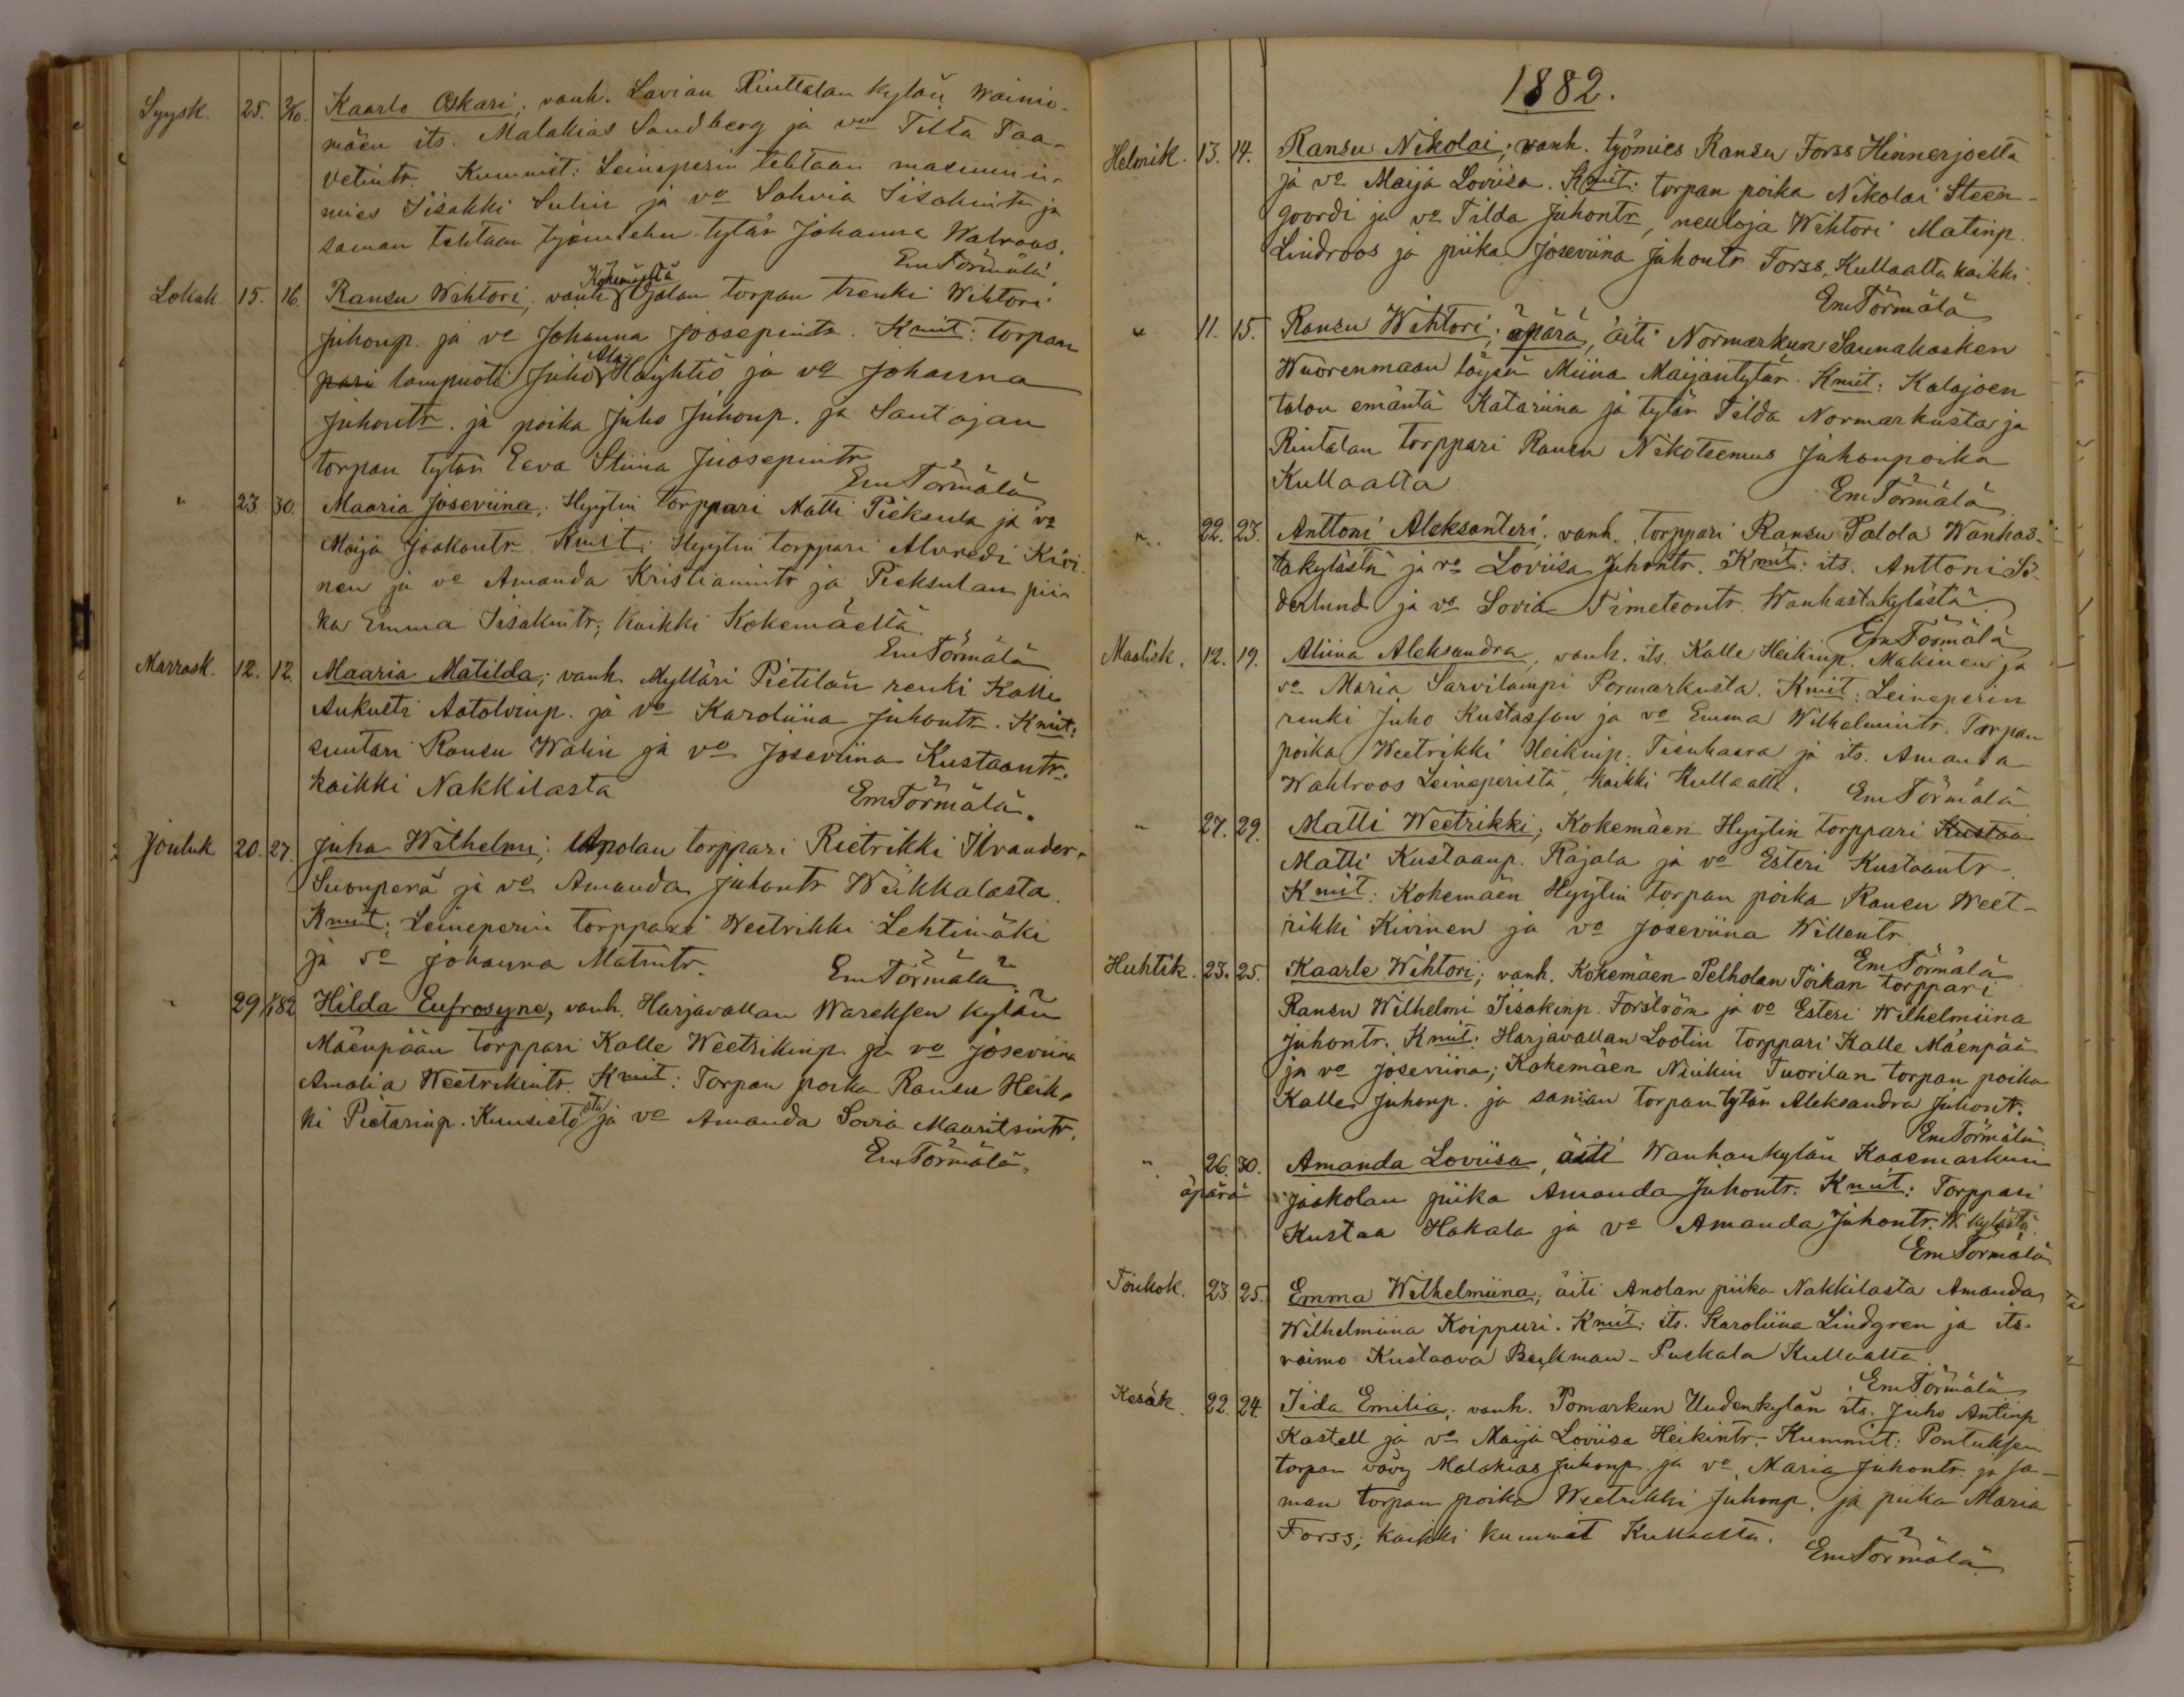 Syysk. 25. 2/10. Kaarlo Oskari; vanh. Lavian Riuttalan kylän Wainio-
mäen its. Malakias Sandberg ja vo Tilta Taa-
vetintr. Kummit: Leineperin tehtaan masuuni-
mies Iisakki Sulin ja vo Sohvia Iisakintr ja
saman tehtaan työmiehen tytär Johanna Walroos.
Em Törmälä
Lokak. 15. 16. Ransu Wihtori; vanh. Kokemäeltä Ojalan torpan trenki Wihtori
Juhonp. ja vo Johanna Joosepintr. Kmit: torpan
pari lampuoti Juho Ala Häyhtiö ja vo Johanna
Juhontr. ja poika Juho Juhonp. ja Santojan
torpan tytär Eeva Stiina Juosepintr
Em Törmälä
" 23. 30. Maaria Joseviina; Hyytin torppari Matti Pieksula ja vo
Maija Jaakontr. Kmit: Hyytin torppari Alvredi Kivi-
nen ja vo Amanda Kristianintr ja Pieksulan pii-
ka Emma Iisakintr; kaikki Kokemäeltä.
Em Törmälä
Marrask. 12. 12. Maaria Matilda; vanh. Mylläri Pietilän renki Kalle
Aukusti Aatolvinp. ja vo Karoliina Juhontr. Kmit:
suutari Ransu Walin ja vo Joseviina Kustaantr.
kaikki Nakkilasta
Em Törmälä.
Jouluk 20. 27. Juha Wilhelmi; Anolan torppari Rietrikki Ilvander-
Suonperä ja vo Amanda Juhontr Wiikkalasta.
Kmit: Leineperin torppari Weetrikki Lehtimäki
ja vo Johanna Matintr.
Em Törmälä
" 29 1/1 82 Hilda Eufrosyne, vanh. Harjavallan Wareksen kylän
Mäenpään torppari Kalle Weetrikinp. ja vo Joseviina
Amalia Weetrikintr. Kmit: Torpan poika Ransu Heik-
ki Pietarinp. Kuusisto sta ja vo Amanda Sovia Mauritsintr.
Em Törmälä.
1882.
Helmik. 13. 14. Ransu Nikolai; vanh. työmies Ransu Forss Hinnerjoelta
ja vo Maija Loviisa. Kmit: torpan poika Nikolai Steen-
goordi ja vo Tilda Juhontr, neuloja Wihtori Matinp.
Lindroos ja piika Joseviina Juhontr. Forss, Kullaalta kaikki.
Em Törmälä
" 11. 15. Ransu Wihtori; äpärä, äiti Normarkun Saunakosken
Wuorenmaan löysä Miina Maijantytär. Kmit: Kalajoen
talon emäntä Katariina ja tytär Tilda Normarkusta ja
Rintalan torppari Ransu Nikoteemus Juhonpoika
Kullaalta
Em Törmälä
" 22. 23. Anttoni Aleksanteri; vanh. torppari Ransu Palola Wanhas-
takylästä ja vo Loviisa Juhontr. Kmit: its. Anttoni Sö-
derlund ja vo Sovia Timeteontr. Wanhastakylästä.
Em Törmälä
Maalisk. 12. 19. Aliina Aleksandra, vanh. its. Kalle Heikinp. Makinen ja
vo Maria Sarvilampi Pormarkusta. Kmit: Leineperin
renki Juho Kustasson ja vo Emma Wilhelmiintr. Torpan
poika Weetrikki Heikinp. Tisuhaara ja its. Amanda
Wahlroos Leineperistä, kaikki Kullaalta.
Em Törmälä
" 27. 29. Matti Weetrikki; Kokemäen Hyytin torppari Kustaa
Matti Kustaanp. Rajala ja vo Esteri Kustaantr.
Kmit: Kokemäen Hyytin torpan poika Ransu Weet-
rikki Kivinen ja vo Joseviina Willentr.
Em Törmälä
Huhtik. 23. 25. Kaarle Wihtori; vanh. Kokemäen Pelholan Törkan torppari
Ransu Wilhelmi Iisakinp. Forström ja vo Esteri Wilhelmiina
Juhontr. Kmit: Harjavallan Lootin torppari Kalle Mäenpää
ja vo Joseviina; Kokemäen Niukin Tuorilan torpan poika
Kalle Juhonp. ja saman torpan tytär Aleksandra Juhont.
Em Törmälä
" 26. 30. Amanda Loviisa, äiti Wanhankylän Kaasmarkun
äpärä Jaakolan piika Amanda Juhontr. Kmit: Torppari
Kustaa Hakala ja vo Amanda Juhontr. W. kylästä.
Em Törmälä
Toukok. 23 25. Emma Wilhelmiina; äiti Anolan piika Nakkilasta Amanda
Wilhelmiina Koippuri. Kmit: its. Karoliina Lindgren ja its.
vaimo Kustaava Beckman-Puskala Kullaalta.
Em Törmälä
Kesäk. 22. 24. Iida Emilia; vanh. Pomarkun Uudenkylän its. Juho Antinp
Kastell ja vo Maija Loviisa Heikintr. Kummit: Pontuksen
torpan vävy Malakias Juhonp. ja vo Maria Juhontr. ja sa-
man torpan poika Weetrikki Juhonp. ja piika Maria
Forss; kaikki kummit Kullaalta.
Em Törmälä